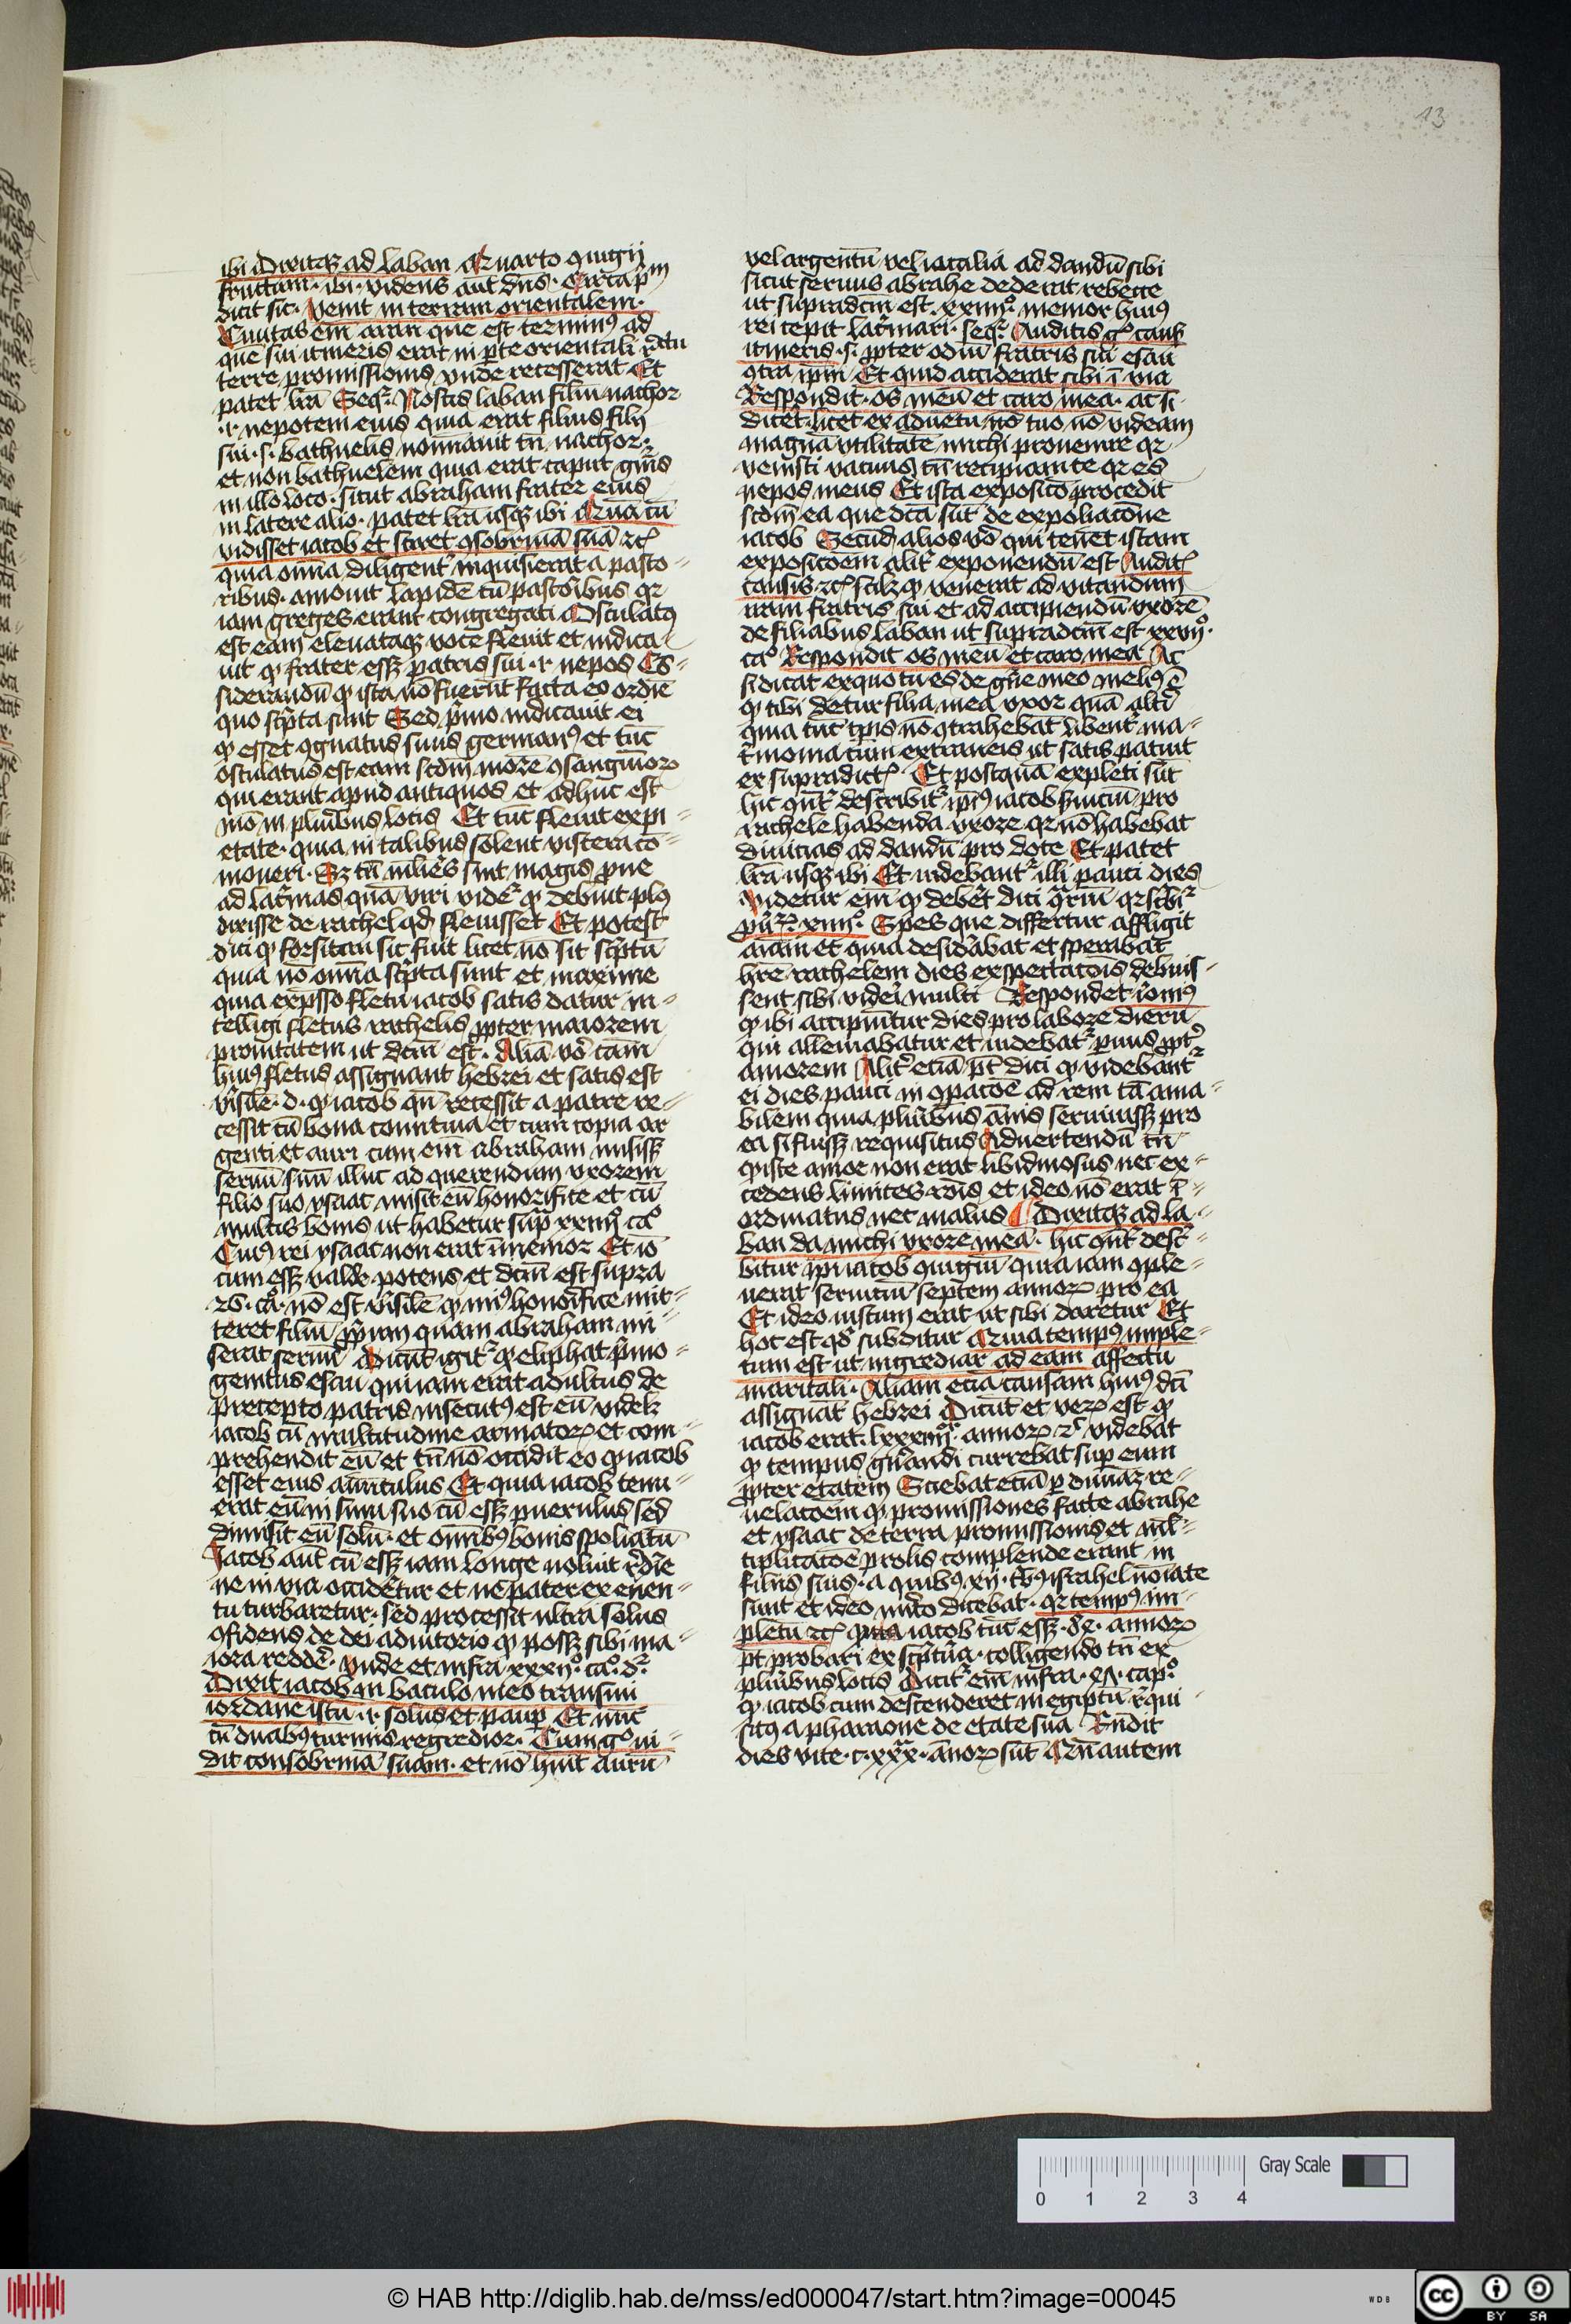 13
ibi Dixitqȝ ad laban Quarto ꝯiugij
fructum · ibi · videns aūt dn̄s · Circa pͫm
dicit sic · Venit in terram orientalem ·
Ciuitas em̄ aran que est terminꝰ ad
quē sui itineris erat in ꝑte orientali rc̄tu
terre promissionis vnde recesserat Et
patet lr̄a Seqr̄ · Nostis laban filiū nachor
·i· nepotem eius quia erat filius filij
sui ·s· bathuelis nominauit tn̄ nachor
et non bathuelem quia erat caput gn̄is
in illo loco · sicut abraham frater eius
in latere alio · patet lr̄a usqȝ ibi Quā cū
vidisset iacob et sciret ꝯsobrinā suā ⁊c̄
quia om̄ia diligent̄ inquisierat a pasto-
ribus · amouit lapidē cū pastoribus qr
iam greges erant congregati Osculatꝰ
est eam eleuataqȝ voce fleuit et indica-
uit ꝙ frater essȝ patris sui ·i· nepos Cō-
siderandū ꝙ ista nō fuerūt facta eo ordīe
quo scp̄ta sunt Sed pͥmo indicauit ei
ꝙ esset ꝯgnatus suus germanꝰ et tūc
osculatus est eam scdm̄ morē ꝯsanguineoꝝ
qui erant apud antiquos et adhuc est
mō in pluribus locis Et tūc fleuit ex pi-
etate · quia in talibus solent viscera cō-
moueri · Sȝ tn̄ mulieres sint magis ꝓne
ad lacrimas quā viri vider̄ ꝙ debuit plꝰ
dixisse de rachel qd̄ fleuisset Et potest
dici ꝙ forsitan sic fuit licet nō sit scp̄tū
quia nō om̄ia scp̄ta sunt et maxime
quia ex expsso fletu iacob satis datur in-
telligi fletus rachelis ꝓpter maiorem
pronitatem ut dcm̄ est · Aliā vō cām
huiꝰ fletus assignant hebrei et satis est
v̄isilē · d · ꝙ iacob qn̄ recessit a patre re-
cessit cū bona comitiua et cum copia ar
genti et auri cum em̄ abraham misissȝ
seruū suū illuc ad querendum vxorem
filio suo ysaac misit eū honorifice et cū
multis bonis ut habetur supͣ xxiiij° ca°
Cuiꝰ rei ysaac non erat īmemor Et iō
cum essȝ valde potens et dcm̄ est supra
26 · ca° · nō est v̄isilē ꝙ minꝰ honorifice mit-
teret filiū ꝓprium quam abraham mi-
serat seruū Dicūt igit̄ ꝙ eliphat pͥmo-
genitus esau qui iam erat adultus de
precepto patris insecutꝰ est eū videlȝ
iacob cū multitudine armatoꝝ et com-
prehendit eū et tn̄ nō occidit eo ꝙ iacob
esset eius auūculus Et quia iacob tenu-
erat eū in sinu suo cū essȝ puerulus sed
dimisit eū solū · et omībꝰ bonis spoliatū
Iacob aūt cū essȝ iam longe noluit rēdīe
ne in via occidetur et ne pater ex euen-
tu turbaretur · sed processit ultra solus
ꝯfidens de dei adiutorio ꝙ possȝ sibi ma-
iora reddē · vnde et infra xxxij° · ca° · dr̄
Dixit iacob in baculo meo transiui
iordanē istū ·i· solus et pauꝑ Et nūc
cū duabꝰ turmis regredior · Cum g° ui-
dit consobrinā suam · et nō huit aurū
vel argentū vel iocalia ad dandū sibi
sicut seruus abrahe dederat rebecce
ut supradcm̄ est · xxiiij° · memor huiꝰ
rei cepit lacͥmari · seqr̄ Auditis g° causis
itineris ·s· ꝓpter odiū fratris sui esau
ꝯtra ipm̄ Et quid acciderat sibi ī via
Respondit · os meū et caro mea · ac si
dicēt · licet ex aduētu tuo nō videam
magnā vtilitatē michi prouenire qr
venisti vacuus tn̄ recipiam te qr es
nepos meus Et ista expositō procedit
scdm̄ ea que dcā sūt de expoliacōne
iacob Secūd alios vō qui tenēt istam
expositōem alit̄ exponendū est Audit̄
causis ⁊c̄ scilȝ ꝙ venerat ad vitandum
iram fratris sui et ad accipiendū vxorē
de filiabus laban ut supradcm̄ est xxvij° ·
ca° Respondit os meū et caro mea Ac
si dicat ex quo tu es de gn̄e meo meliꝰ ē
ꝙ tibi detur filia mea vxor quā alt̄i
quia tūc tꝑis nō ꝯtrahebāt libent̄ ma-
tͥmonia cum extraneis ut satis patuit
ex supradict̄ Et postquā expleti sūt
hic ꝯn̄t̄ describit̄ ipͥꝰ iacob seruiciū pro
rachele habenda vxore qr nō habebat
diuitias ad dandū pro dote Et patet
lr̄a usqȝ ibi Et uidebant̄ illi pauci dies
Videtur em̄ ꝙ debet dici ꝯͣriū qr scͥbit̄
pͧ xiij° · Spes que differtur affligit
aīam et quia desiderabat et sperabat
hr̄e rachelem dies exspectacōis debuis-
sent sibi videri multi Respondet iͤronimꝰ
ꝙ ibi accipiūtur dies pro labore dierū
qui alleuiabatur et uidebat̄ paruus ꝓpt̄
amorem Alit̄ eciā pt̄ dici ꝙ videbant̄
ei dies pauci in ꝯparacōē ad rem tā ama-
bilem quia pluribus ānis seruiuissȝ pro
ea si fuissȝ requisitus Aduertendū tn̄
ꝙ iste amor non erat libidinosus nec ex-
cedens limites rōis et ideo nō erat ī-
ordinatus nec malus Dixitqȝ ad la-
ban da michi vxorē meā · hic ꝯn̄t̄ descͥ-
bitur ipͥ iacob ꝯiugiū quia iam ꝯple-
uerat seruitiū septem annoꝝ pro ea
Et ideo iustum erat ut sibi daretur Et
hoc est qd̄ subditur Quia tempꝰ imple-
tum est ut ingrediar ad eam affectu
maritali · Aliam eciā causam huiꝰ dcī
assignāt hebrei Dicūt et veꝝ est ꝙ
iacob erat · lxxxiiij°ʳ annoꝝ ⁊ videbat
ꝙ tempus gn̄andi currebat suꝑ eum
ꝓpter etatem Sciebat eciā ꝑ diuinā re-
uelacōem ꝙ promissiones facte abrahe
et ysaac de terra promissionis et ml̄-
tiplicacōē prolis complende erant in
filijs suis · a quibꝰ xij · tͥbꝰ israhel nōiate
sunt et ideo mito dicebat · qr tempꝰ im-
pletū ⁊c̄ iacob tūc essȝ · annoꝝ
pt̄ probari ex scp̄tura · colligendo tn̄ ex
pluribus locis Dicit̄ em̄ infra · cap° ·
ꝙ iacob cum descenderet in egiptū rͤqui-
situs a pharaone de etate sua Rn̄dit
dies vite · c · xxx · ānoꝝ sūt Qn̄ autem
Gray Scale
0 1 2 3 4
© HAB http://diglib.hab.de/mss/ed000047/start.htm?image=00045
WDB
cc BY SA